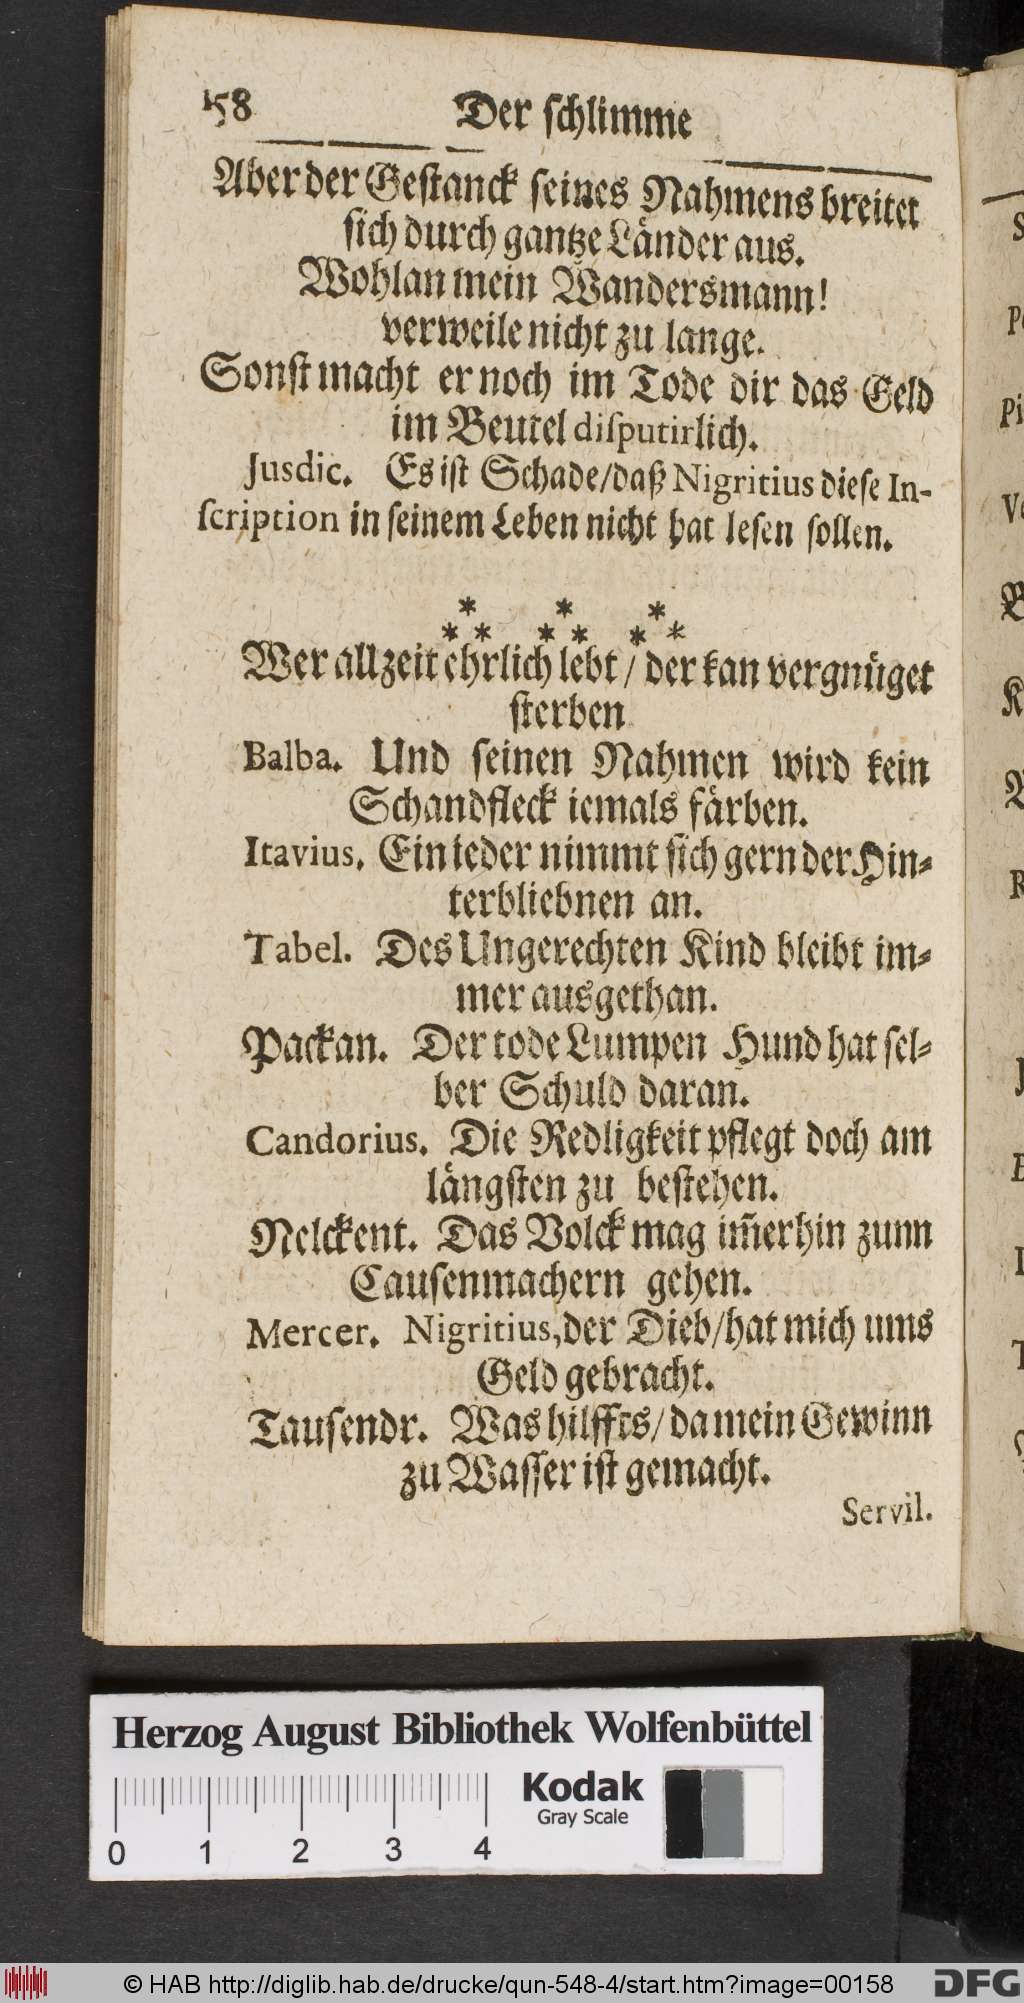 158 Der ſchlimme
Aber der Geſtanck ſeines Nahmens breitet
ſich durch gantze Länder aus.
Wohlan mein Wandersmann!
verweile nicht zu lange.
Sonſt macht er noch im Tode dir das Geld
im Beutel diſputirlich.
Jusdic. Es iſt Schade/daß Nigritius dieſe In-
ſcription in ſeinem Leben nicht hat leſen ſollen.
* * *
* * * * * *
Wer allzeit ehrlich lebt / der kan vergnüget
ſterben
Balba. Und ſeinen Nahmen wird kein
Schandfleck iemals färben.
Itavius. Ein ieder nimmt ſich gern der Hin-
terbliebnen an.
Tabel. Des Ungerechten Kind bleibt im-
mer ausgethan.
Packan. Der tode Lumpen Hund hat ſel-
ber Schuld daran.
Candorius. Die Redligkeit pflegt doch am
längſten zu beſtehen.
Nelckent. Das Volck mag im̄erhin zunn
Cauſenmachern gehen.
Mercer. Nigritius, der Dieb/hat mich ums
Geld gebracht.
Tauſendr. Was hilffts/ da mein Gewinn
zu Waſſer iſt gemacht.
Servil.
Herzog August Bibliothek Wolfenbüttel
Kodak
Gray Scale
0 1 2 3 4
© HAB http://diglib.hab.de/drucke/qun-548-4/start.htm?image=00158
DFG